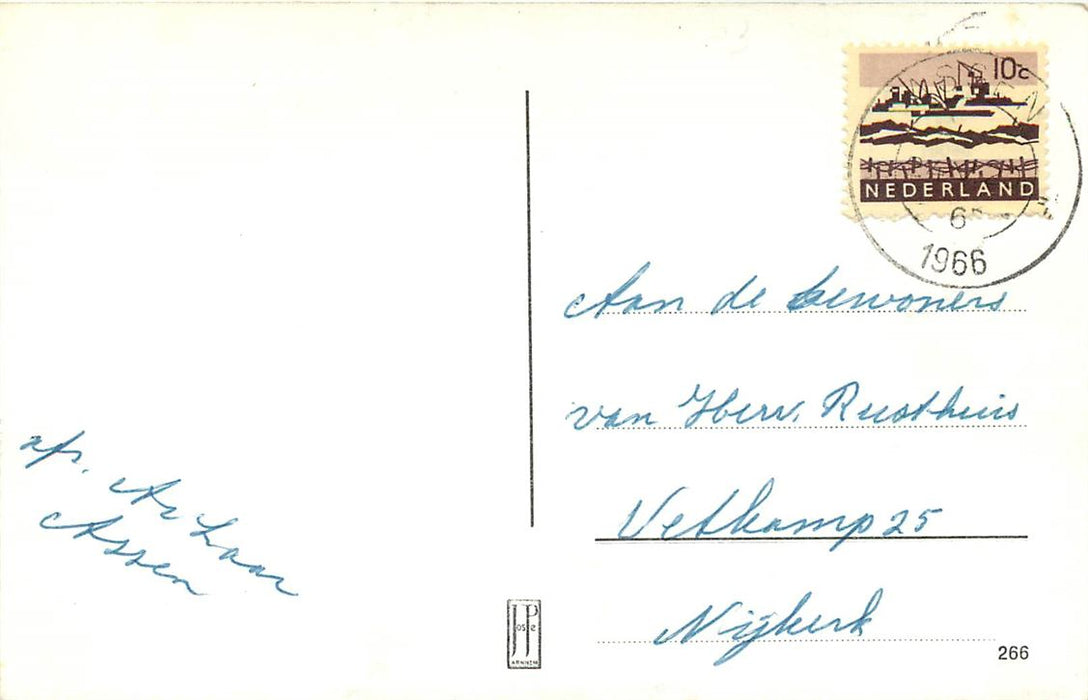 10c
NEDERLAND
6
1966
Aan de bewoners
van Herv. Rusthuis
Vetkamp 25
Nijkerk
afz.
Laar
Assen
JP
ARNHEM
266